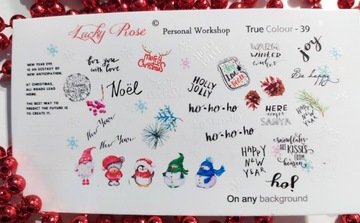 Lucky Rose
©
Personal Workshop
True Colour - 39
NEW YEAR EVE
IS AN ECSTASY OF
NEW ANTICIPATION.
AT CHRISTMAS,
ALL ROADS LEAD
HOME.
THE BEST WAY TO
PREDICT THE FUTURE IS
TO CREATE IT.
for you
with love
Merry
Christmas
WARM
WINTER
wishes
joy
Be happy
Noël
HOLLY
JOLLY
ho-ho-ho
ho-ho-ho
HERE
COMES
SANTA
New Year
New Year
HAPPY
NEW
YEAR
snowflakes
are KISSES
from
heaven
ho!
On any background